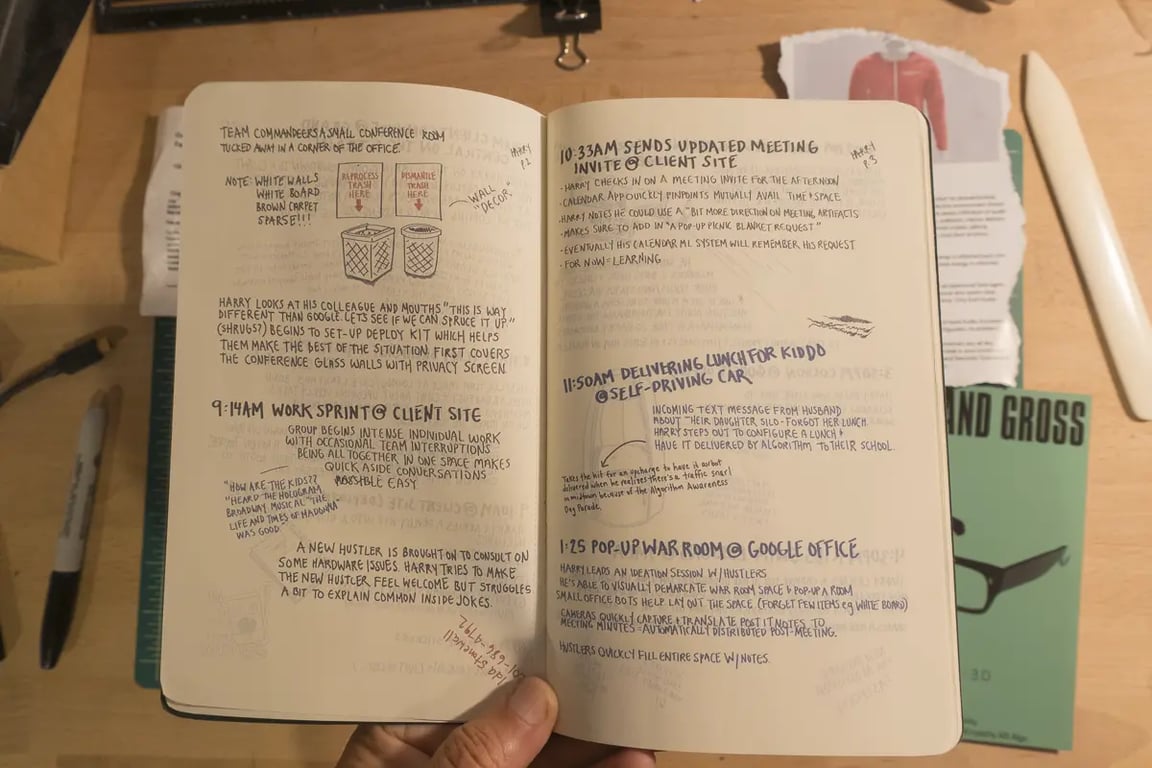 TEAM COMMANDEERS A SMALL CONFERENCE ROOM
TUCKED AWAY IN A CORNER OF THE OFFICE.
HARRY
P.2
NOTE: WHITE WALLS
WHITE BOARD
BROWN CARPET
SPARSE!!!
REPROCESS
TRASH
HERE
DISMANTLE
TRASH
HERE
WALL
"DECOR"
HARRY LOOKS AT HIS COLLEAGUE AND MOUTHS "THIS IS WAY
DIFFERENT THAN GOOGLE. LETS SEE IF WE CAN SPRUCE IT UP"
(SHRUGS?) BEGINS TO SET-UP DEPLOY KIT WHICH HELPS
THEM MAKE THE BEST OF THE SITUATION. FIRST COVERS
THE CONFERENCE GLASS WALLS WITH PRIVACY SCREEN.
9:14AM WORK SPRINT @ CLIENT SITE
GROUP BEGINS INTENSE INDIVIDUAL WORK
WITH OCCASIONAL TEAM INTERRUPTIONS
BEING ALL TOGETHER IN ONE SPACE MAKES
QUICK ASIDE CONVERSATIONS
POSSIBLE EASY.
"HOW ARE THE KIDS??
"HEARD THE HOLOGRAM
BROADWAY MUSICAL "THE
LIFE AND TIMES OF MADONNA"
WAS GOOD"
A NEW HUSTLER IS BROUGHT ON TO CONSULT ON
SOME HARDWARE ISSUES. HARRY TRIES TO MAKE
THE NEW HUSTLER FEEL WELCOME BUT STRUGGLES
A BIT TO EXPLAIN COMMON INSIDE JOKES.
HARRY
P.3
10:33AM SENDS UPDATED MEETING
INVITE @ CLIENT SITE
- HARRY CHECKS IN ON A MEETING INVITE FOR THE AFTERNOON
- CALENDAR APP QUICKLY PINPOINTS MUTUALLY AVAIL. TIME & SPACE
- HARRY NOTES HE COULD USE A "BIT MORE DIRECTION ON MEETING ARTIFACTS
- MAKES SURE TO ADD IN "A POP-UP PICNIC BLANKET REQUEST"
- EVENTUALLY HIS CALENDAR ML SYSTEM WILL REMEMBER HIS REQUEST
- FOR NOW = LEARNING
11:50AM DELIVERING LUNCH FOR KIDDO
@ SELF-DRIVING CAR
INCOMING TEXT MESSAGE FROM HUSBAND
ABOUT THEIR DAUGHTER, SILO - FORGOT HER LUNCH.
HARRY STEPS OUT TO CONFIGURE A LUNCH &
HAVE IT DELIVERED BY ALGORITHM TO THEIR SCHOOL.
Takes the hit for an upcharge to have it airbot
delivered when he realizes there's a traffic snarl
in midtown because of the Algorithm Awareness
Day Parade.
1:25 POP-UP WAR ROOM @ GOOGLE OFFICE
HARRY LEADS AN IDEATION SESSION W/HUSTLERS
HE'S ABLE TO VISUALLY DEMARCATE WAR ROOM SPACE & POP-UP A ROOM
SMALL OFFICE BOTS HELP LAY OUT THE SPACE (FORGET FEW ITEMS eg WHITE BOARD)
CAMERAS QUICKLY CAPTURE & TRANSLATE POST IT NOTES TO
MEETING MINUTES = AUTOMATICALLY DISTRIBUTED POST-MEETING.
HUSTLERS QUICKLY FILL ENTIRE SPACE W/NOTES.
AND GROSS
3.0